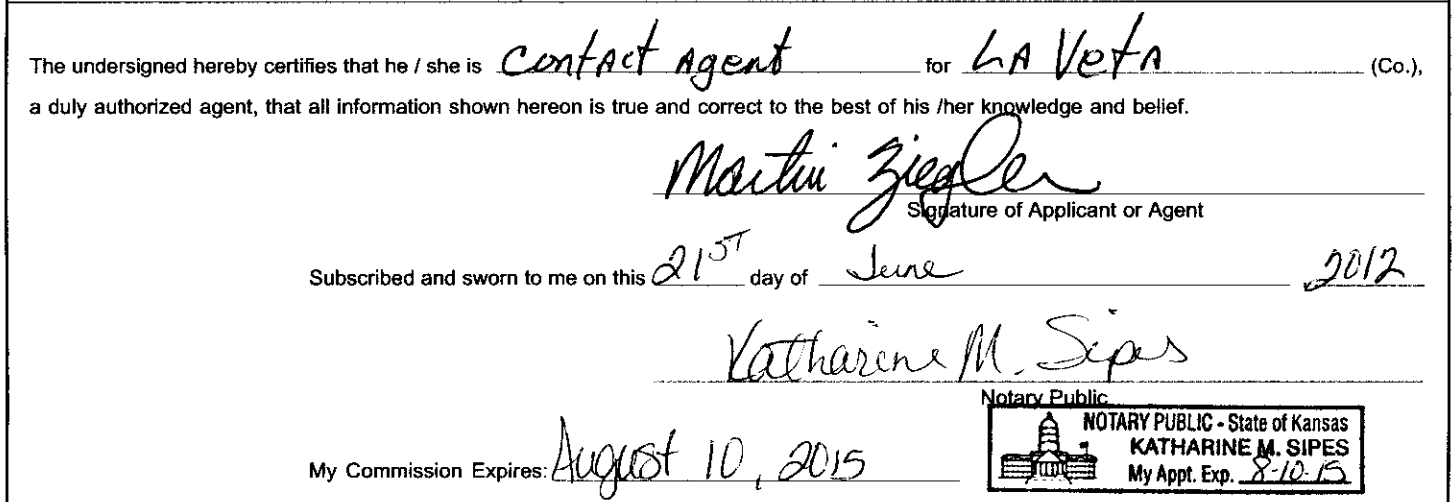 The undersigned hereby certifies that he / she is Contact Agent for LA Veta (Co.),
a duly authorized agent, that all information shown hereon is true and correct to the best of his /her knowledge and belief.
Martin Ziegler
Signature of Applicant or Agent
Subscribed and sworn to me on this 21ST day of June 2012
Katharine M. Sipes
Notary Public
NOTARY PUBLIC - State of Kansas
KATHARINE M. SIPES
My Appt. Exp. 8-10-15
My Commission Expires: August 10, 2015